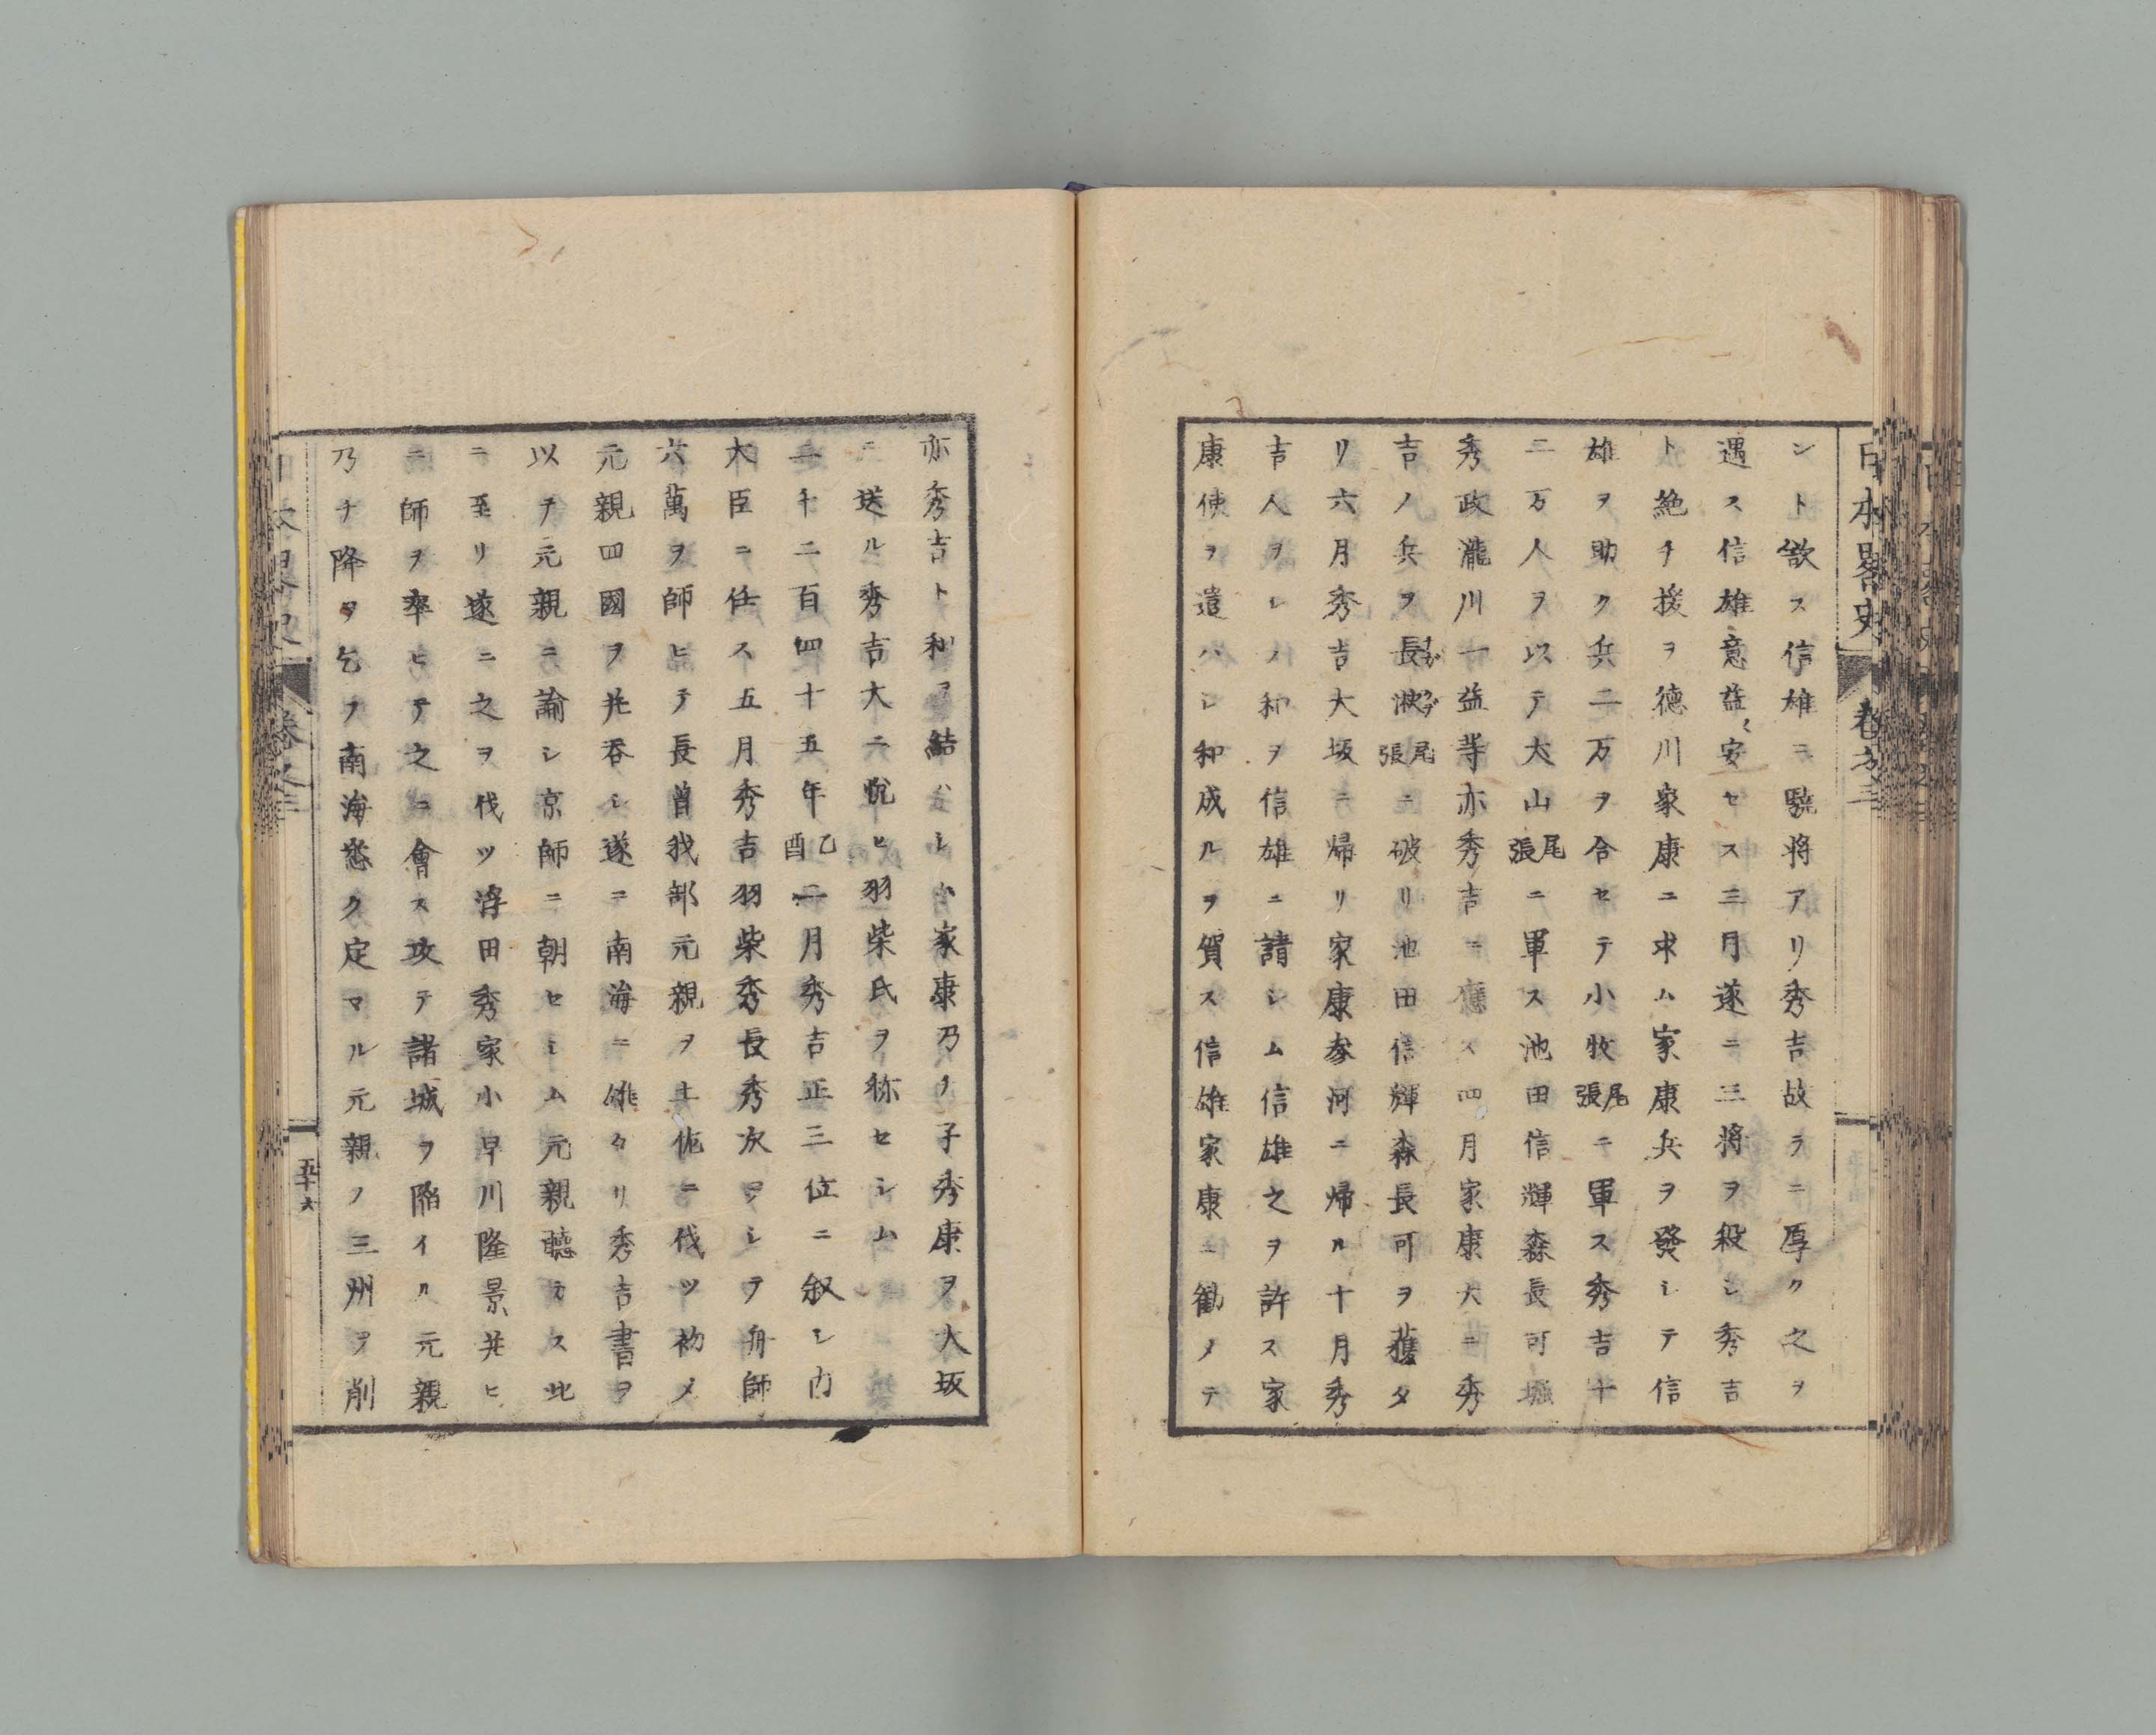 日本畧史 卷之三
ント欲ス信雄ニ驍将アリ秀吉故ラニ厚ク之ヲ
遇ス信雄意益〻安セス三月遂ニ三将ヲ殺シ秀吉
ト絶チ援ヲ德川家康ニ求ム家康兵ヲ發シテ信
雄ヲ助ク兵二万ヲ合セテ小牧尾張ニ軍ス秀吉十
二万人ヲ以テ犬山尾張ニ軍ス池田信輝森長可堀
秀政瀧川一益等亦秀吉ニ應ス四月家康大ニ秀
吉ノ兵ヲ長湫尾張ニ破リ池田信輝森長可ヲ獲タ
リ六月秀吉大坂ニ帰リ家康参河ニ帰ル十月秀
吉人ヲシテ和ヲ信雄ニ請シム信雄之ヲ許ス家
康使ヲ遣ハシ和成ルヲ賀ス信雄家康ニ勸メテ
亦秀吉ト和ヲ結ハシム家康乃チ子秀康ヲ大坂
ニ送ル秀吉大ニ悦ヒ羽柴氏ヲ称セシム
二千二百四十五年乙酉二月秀吉正三位ニ叙シ内
大臣ニ任ス五月秀吉羽柴秀長秀次ヲシテ舟師
六萬ヲ師ヒテ長曽我部元親ヲ土佐ニ伐ツ初メ
元親四國ヲ并吞シ遂ニ南海ニ雄タリ秀吉書ヲ
以テ元親ニ諭シ京師ニ朝セシム元親聽カス此
ニ至リ遂ニ之ヲ伐ツ浮田秀家小早川隆景并ヒ
ニ師ヲ率ヒテ之ニ會ス攻テ諸城ヲ陥イル元親
乃チ降ヲ乞フ南海悉ク定マル元親ノ三州ヲ削
日本畧史 卷之三 五十六